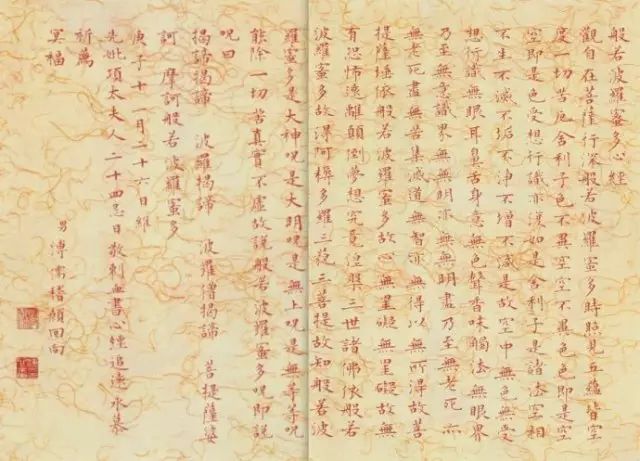 般若波羅蜜多心經
觀自在菩薩行深般若波羅蜜多時照見五蘊皆空
度一切苦厄舍利子色不異空空不異色色即是空
空即是色受想行識亦復如是舍利子是諸法空相
不生不滅不垢不淨不增不減是故空中無色無受
想行識無眼耳鼻舌身意無色聲香味觸法無眼界
乃至無意識界無無明亦無無明盡乃至無老死亦
無老死盡無苦集滅道無智亦無得以無所得故菩
提薩埵依般若波羅蜜多故心無罣礙無罣礙故無
有恐怖遠離顛倒夢想究竟涅槃三世諸佛依般若
波羅蜜多故得阿耨多羅三藐三菩提故知般若波
羅蜜多是大神呪是大明呪是無上呪是無等等呪
能除一切苦真實不虛故說般若波羅蜜多呪即說
呪曰
揭諦揭諦 波羅揭諦 波羅僧揭諦 菩提薩婆
訶 摩訶般若波羅蜜多
庚子十一月二十六日維
先妣項太夫人二十四忌日敬刺血書心經追遠永慕
祈薦
冥福
男溥儒稽顙回向